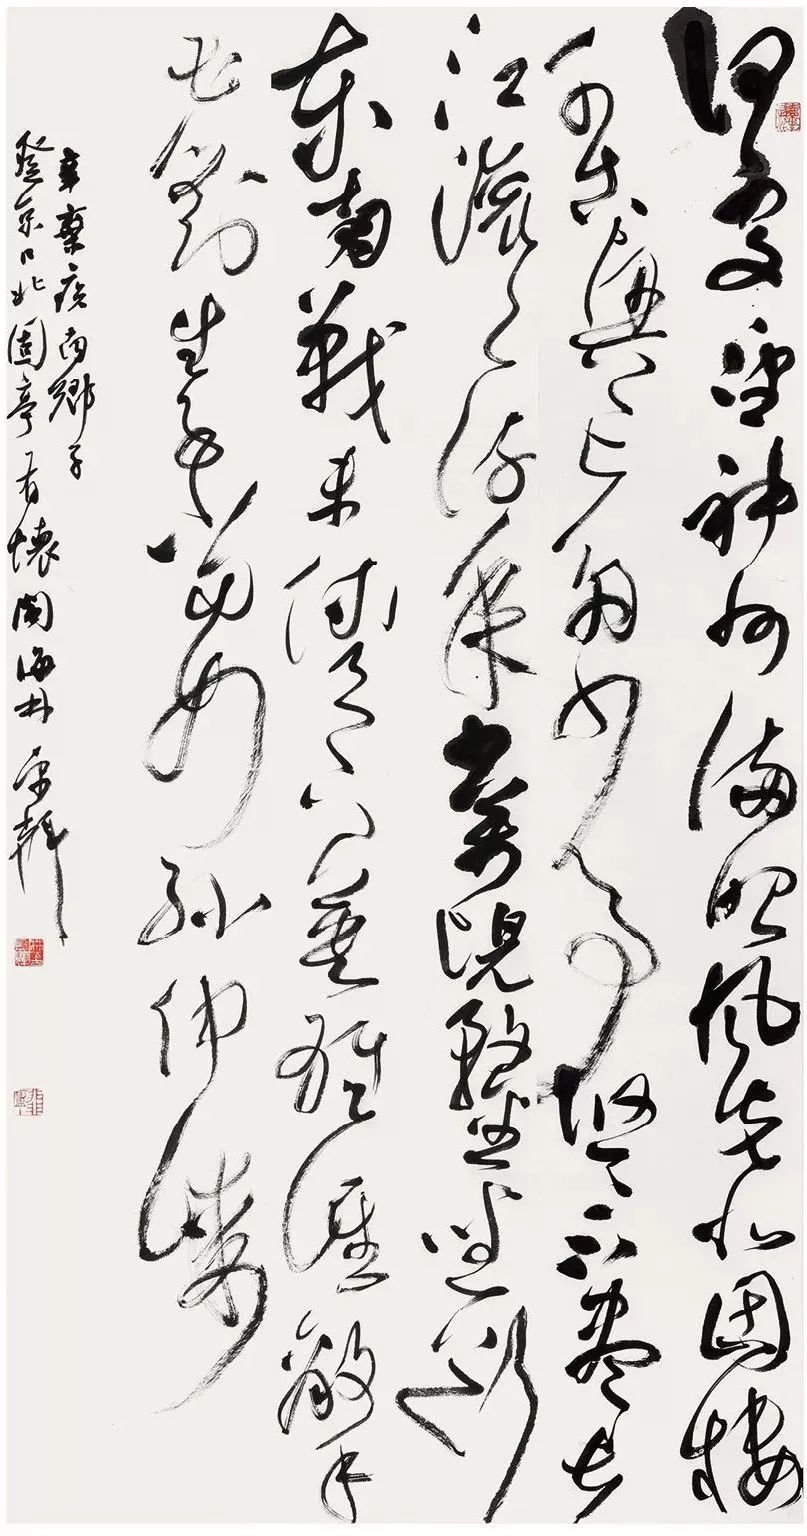 何處望神州滿眼風光北固樓
千古興亡多少事悠〻不盡長
江滾〻流年少萬兜鍪坐斷
東南戰未休天下英雄誰敵手
曹劉生子當如孫仲謀
辛棄疾南鄉子
登京口北固亭有懷閩海林